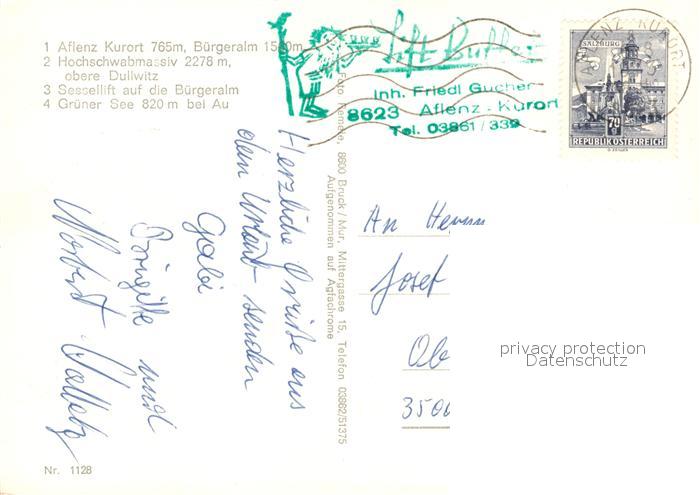 1 Aflenz Kurort 765m, Bürgeralm 1500m
2 Hochschwabmassiv 2278 m,
obere Dullwitz
3 Sessellift auf die Bürgeralm
4 Grüner See 820 m bei Au
Inh. Friedl Gucher
8623 Aflenz - Kurort
Tel. 03861 / 339
AFLENZ KURORT
SALZBURG
70 g
REPUBLIK ÖSTERREICH
Herzliche Grüße aus
dem Urlaub senden
Gabi
Brigitte und
Norbert
8600 Bruck / Mur, Mittergasse 15, Telefon 03862/51375
Aufgenommen auf Agfachrome
An Herrn
Josef
privacy protection
Datenschutz
Nr. 1128